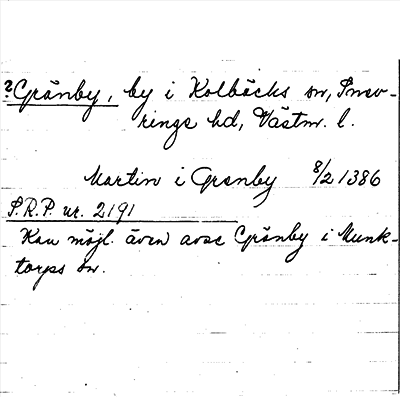 ? Gränby, by i Kolbäcks sn, Snev-
ringe hd, Västm. l.
Martin i Grenby 8/2 1386
S.R.P. nr. 2191
Kan möjl. även avse Gränby i Munk-
torps sn.